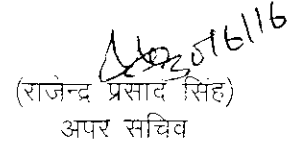 30/6/16
(राजेन्द्र प्रसाद सिंह)
अपर सचिव